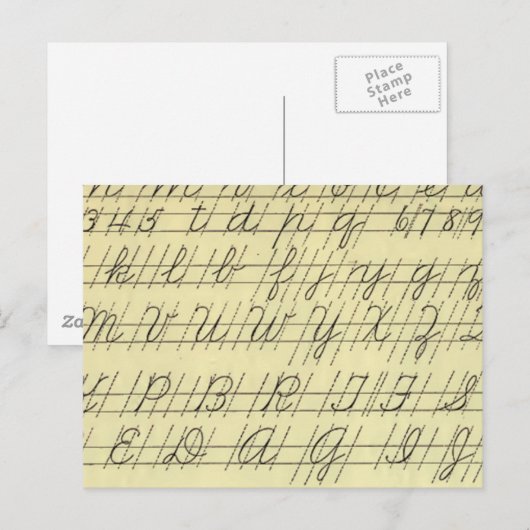 Place
Stamp
Here
Za
n m n
3 4 5 t d p q 6 7 8 9
k l b f j y g z
M V U W Y X Z
P B R T F S
E D A G I J